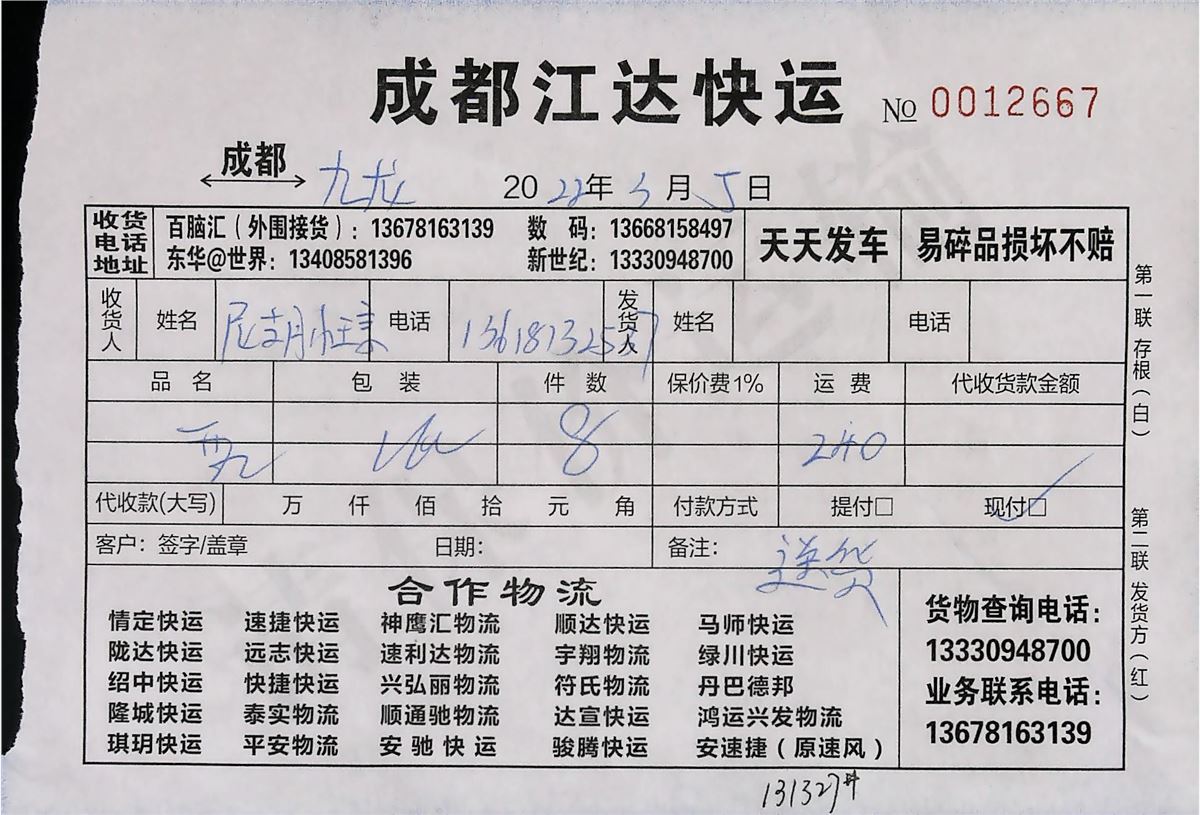 成都江达快运 No 0012667
成都 九龙 2022年3月5日
收货电话地址 百脑汇（外围接货）：13678163139 数 码：13668158497 天天发车 易碎品损坏不赔
东华@世界：13408581396 新世纪：13330948700
收货人 姓名 电话 发货人 姓名 电话
品名 包装 件数 保价费1% 运费 代收货款金额
8 240
代收款(大写) 万 仟 佰 拾 元 角 付款方式 提付□ 现付□
客户：签字/盖章 日期： 备注：送货
合作物流
情定快运 速捷快运 神鹰汇物流 顺达快运 马师快运
陇达快运 远志快运 速利达物流 宇翔物流 绿川快运
绍中快运 快捷快运 兴弘丽物流 符氏物流 丹巴德邦
隆城快运 泰实物流 顺通驰物流 达宣快运 鸿运兴发物流
琪玥快运 平安物流 安驰快运 骏腾快运 安速捷（原速风）
货物查询电话：
13330948700
业务联系电话：
13678163139
第一联 存根（白）
第二联 发货方（红）
131327#